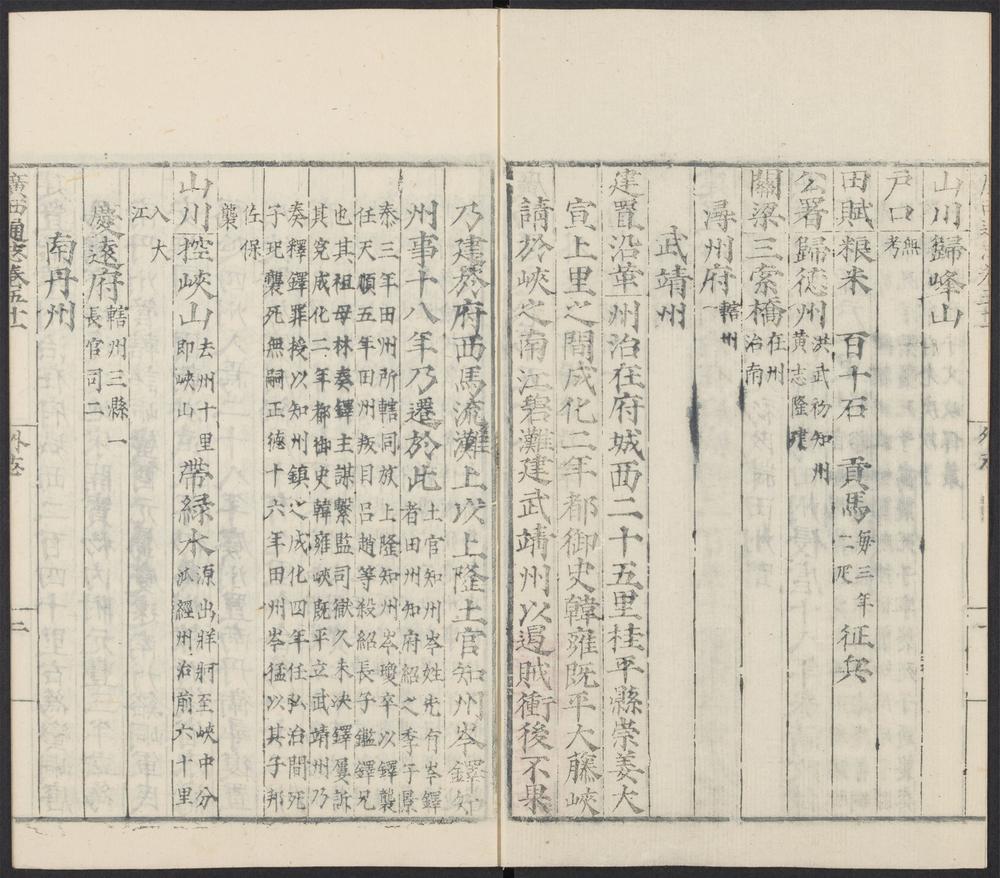 山川歸峰山
戶口無考
田賦粮米 百十石 貢馬每三年征兵二疋
公署歸德州洪武初知州黃志隆建
關梁三索橋在州治南
潯州府轄州
武靖州
建置沿革州治在府城西二十五里桂平縣崇姜大
宣上里之間成化二年都御史韓雍既平大藤峽
請於峽之南江碧灘建武靖州以遏賊衝後不果
乃建於府西馬流灘上以上隆土官知州岑鐸知
州事十八年乃遷於此土官知州岑姓先有岑鐸
者田州知府紹之季子景
泰三年田州所轄同放上隆知州岑瓊卒以鐸襲
任天順五年田州叛目呂趙等殺紹長子鑑鐸兄
也其祖母林奏鐸主謀繫監司獄久未決鐸屢訴
其寃成化二年都御史韓雍峽既平立武靖州乃
奏釋鐸罪授以知州鎮之成化四年任弘治間死
子玘襲死無嗣正德十六年田州岑猛以其子邦
佐保
襲
山川控峽山去州十里即峽山帶綠水源出牂牁至峽中分
派經州治前六十里
入大
江
慶遠府轄州三縣一長官司二
南丹州
廣西通志卷五十一
外志